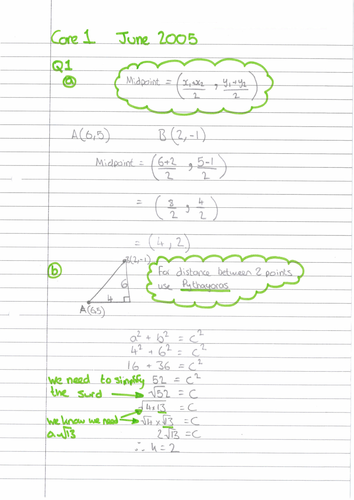 Core 1 June 2005
Q1
a
Midpoint = (x₁+x₂/2 , y₁+y₂/2)
A(6,5) B(2,-1)
Midpoint = (6+2/2 , 5-1/2)
= (8/2 , 4/2)
= (4, 2)
b
B(2,-1)
6
4
A(6,5)
For distance between 2 points
use Pythagoras
a² + b² = c²
4² + 6² = c²
16 + 36 = c²
we need to simplify 52 = c²
the surd → √52 = c
√4×13 = c
we know we need √4 × √13 = c
a√13 2√13 = c
∴ k = 2